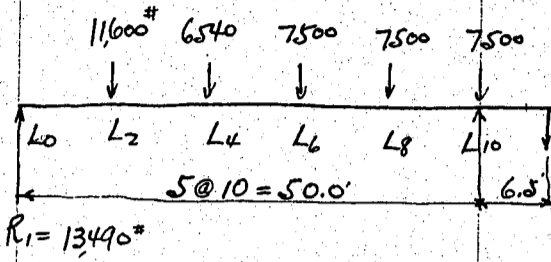 11,600# 6540 7500 7500 7500
L0 L2 L4 L6 L8 L10
5@10 = 50.0' 6.5'
R1 = 13,490#